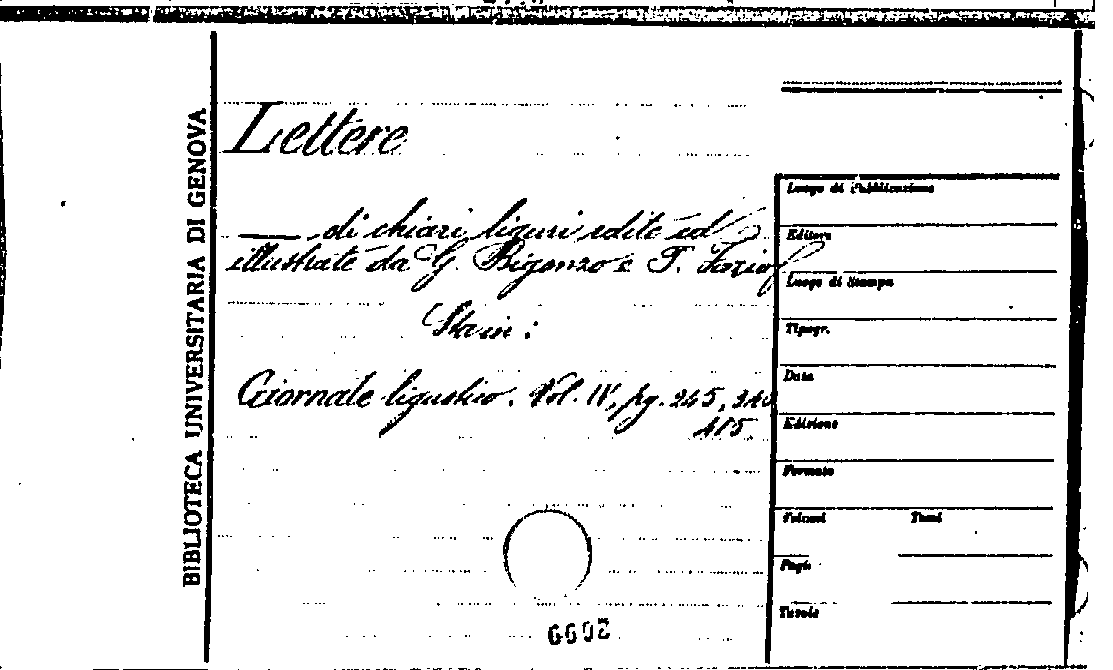 BIBLIOTECA UNIVERSITARIA DI GENOVA
Lettere
—— di chiari liguri edite ed
illustrate da G. Bigonzo e T.
Sta in:
Giornale ligustico. Vol. IV, pg. 245, 340
415.
Luogo di Pubblicazione
Editore
Luogo di Stampa
Tipogr.
Data
Edizione
Formato
Volumi Tomi
Pagg.
Tavole